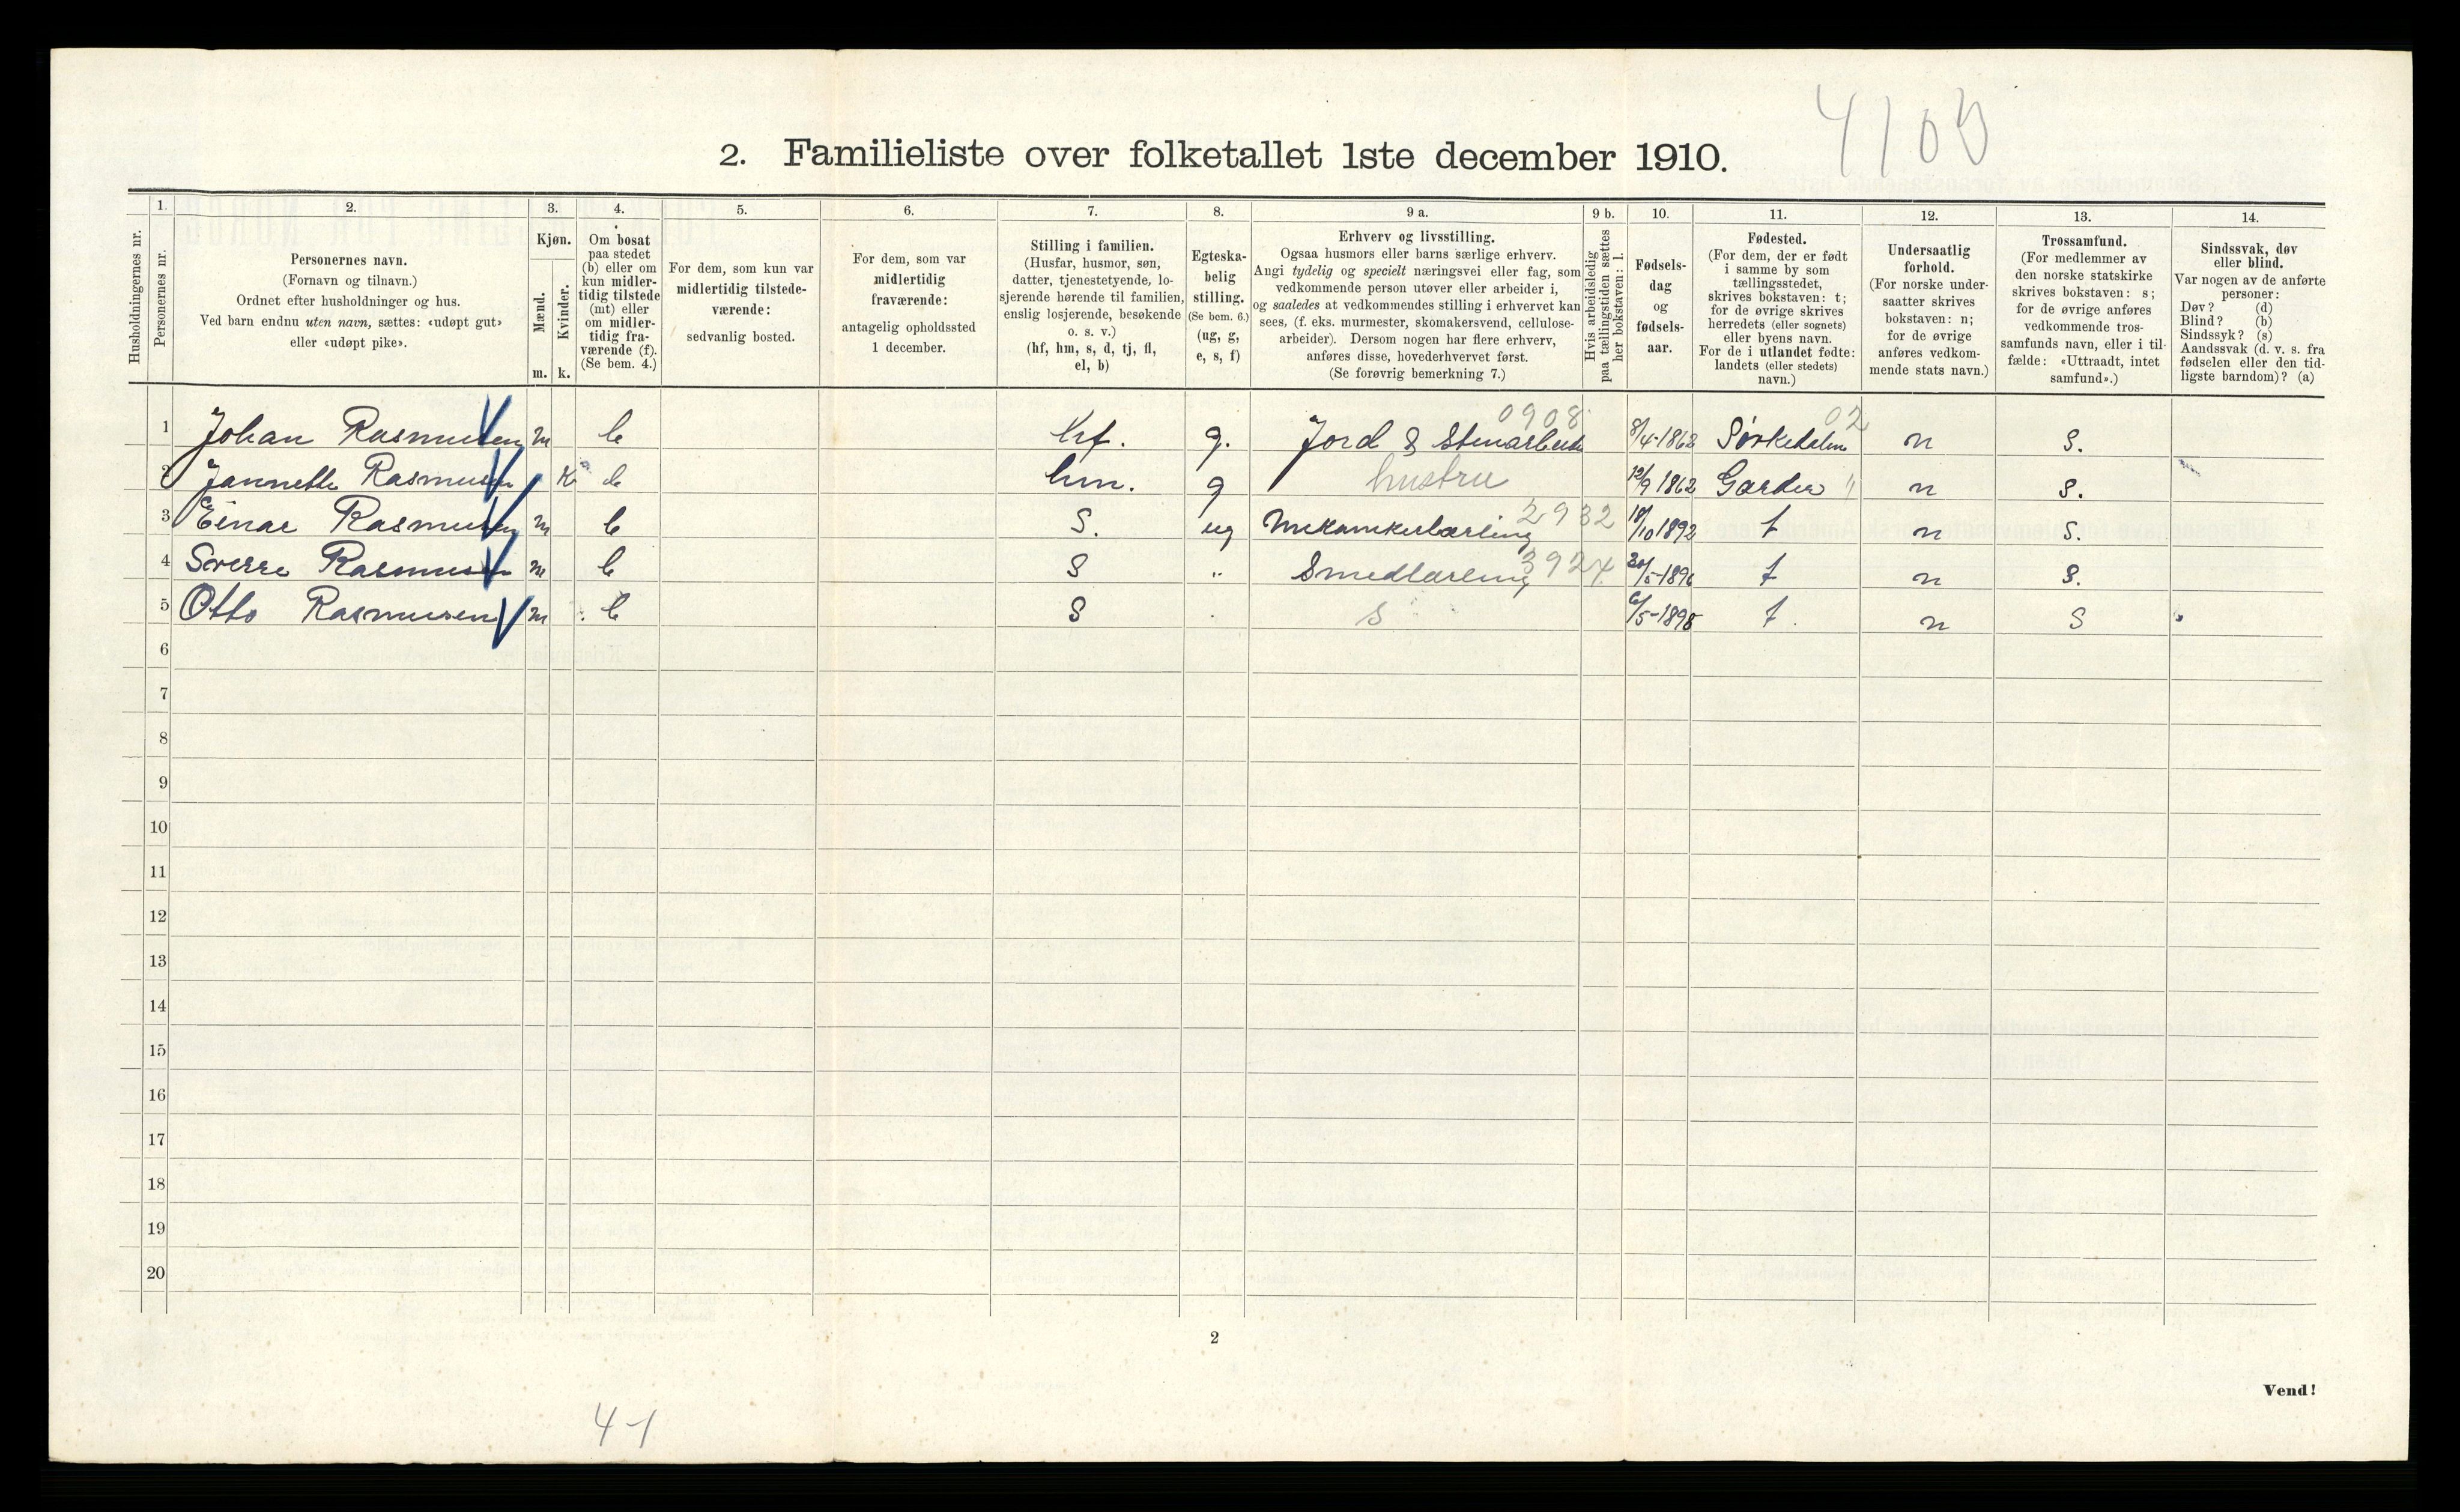 4100
2. Familieliste over folketallet 1ste december 1910.
Husholdningernes nr.
1.
Personernes nr.
2.
Personernes navn.
(Fornavn og tilnavn.)
Ordnet efter husholdninger og hus.
Ved barn endnu uten navn, sættes: «udøpt gut»
eller «udøpt pike».
3.
Kjøn.
Mænd.
Kvinder.
m. k.
4.
Om bosat
paa stedet
(b) eller om
kun midler-
tidig tilstede
(mt) eller
om midler-
tidig fra-
værende (f).
(Se bem. 4.)
5.
For dem, som kun var
midlertidig tilstede-
værende:
sedvanlig bosted.
6.
For dem, som var
midlertidig
fraværende:
antagelig opholdssted
1 december.
7.
Stilling i familien.
(Husfar, husmor, søn,
datter, tjenestetyende, lo-
sjerende hørende til familien,
enslig losjerende, besøkende
o. s. v.)
(hf, hm, s, d, tj, fl,
el, b)
8.
Egteska-
belig
stilling.
(Se bem. 6.)
(ug, g,
e, s, f)
9 a.
Erhverv og livsstilling.
Ogsaa husmors eller barns særlige erhverv.
Angi tydelig og specielt næringsvei eller fag, som
vedkommende person utøver eller arbeider i,
og saaledes at vedkommendes stilling i erhvervet kan
sees, (f. eks. murmester, skomakersvend, cellulose-
arbeider). Dersom nogen har flere erhverv,
anføres disse, hovederhvervet først.
(Se forøvrig bemerkning 7.)
9 b.
Hvis arbeidsledig
paa tællingstiden sættes
her bokstaven: l.
10.
Fødsels-
dag
og
fødsels-
aar.
11.
Fødested.
(For dem, der er født
i samme by som
tællingsstedet,
skrives bokstaven: t;
for de øvrige skrives
herredets (eller sognets)
eller byens navn.
For de i utlandet fødte:
landets (eller stedets)
navn.)
12.
Undersaatlig
forhold.
(For norske under-
saatter skrives
bokstaven: n;
for de øvrige
anføres vedkom-
mende stats navn.)
13.
Trossamfund.
(For medlemmer av
den norske statskirke
skrives bokstaven: s;
for de øvrige anføres
vedkommende tros-
samfunds navn, eller i til-
fælde: «Uttraadt, intet
samfund».)
14.
Sindssvak, døv
eller blind.
Var nogen av de anførte
personer:
Døv? (d)
Blind? (b)
Sindssyk? (s)
Aandssvak (d. v. s. fra
fødselen eller den tid-
ligste barndom)? (a)
0908 02
1 Johan Rasmussen m b hf. g. Jord & Stenarbeide 8/4-1862 Sørkedalen n s.
2 Jannette Rasmusen K b hm. g hustru 12/9 1862 Garder " n s.
3 Einar Rasmusen m b S. ug Mekanikerlærling 2932 18/10 1892 t n s.
4 Sverre Rasmusen m b S " Smedlærling 3924 20/5-1896 t n s.
5 Otto Rasmusen m b S s 6/5-1898 t. n s
6
7
8
9
10
11
12
13
14
15
16
17
18
19
20
2
Vend!
4-1